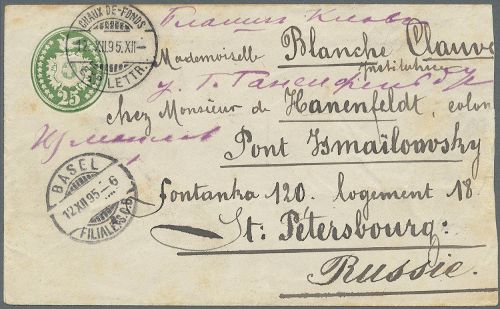 CHAUX-DE-FONDS
12.XII.95.XII-
LETTR.
25
Mademoiselle Blanche Clauve
Institutrice
chez Monsieur de Hanenfeldt, colon
Pont Ismaïlowsky
BASEL
12.XII.95.-6
FILIALE
Fontanka 120. logement 18
St. Pétersbourg.
Russie.